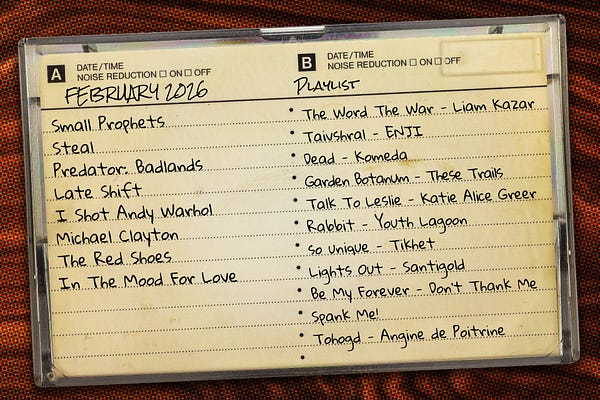 A DATE/TIME
NOISE REDUCTION ☐ ON ☐ OFF
FEBRUARY 2026
Small Prophets
Steal
Predator: Badlands
Late Shift
I Shot Andy Warhol
Michael Clayton
The Red Shoes
In The Mood For Love
B DATE/TIME
NOISE REDUCTION ☐ ON ☐ OFF
Playlist
• The Word The War - Liam Kazar
• Taivshral - ENJI
• Dead - Komeda
• Garden Botanum - These Trails
• Talk To Leslie - Katie Alice Greer
• Rabbit - Youth Lagoon
• so unique - Tikhet
• Lights Out - Santigold
• Be My Forever - Don't Thank Me
• Spank Me!
• Tohogd - Angine de Poitrine
•